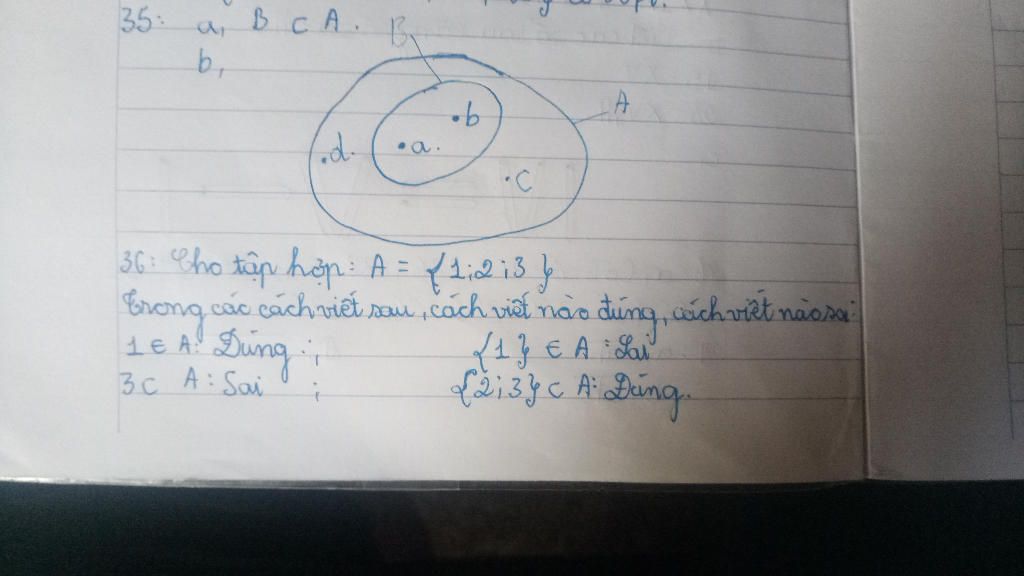 35: a, B ⊂ A.
B
b,
A
b
d.
a.
c
36: Cho tập hợp: A = {1;2;3}
Trong các cách viết sau, cách viết nào đúng, cách viết nào sai:
1 ∈ A: Đúng ; {1} ∈ A: Sai
3 ⊂ A: Sai ; {2;3} ⊂ A: Đúng.